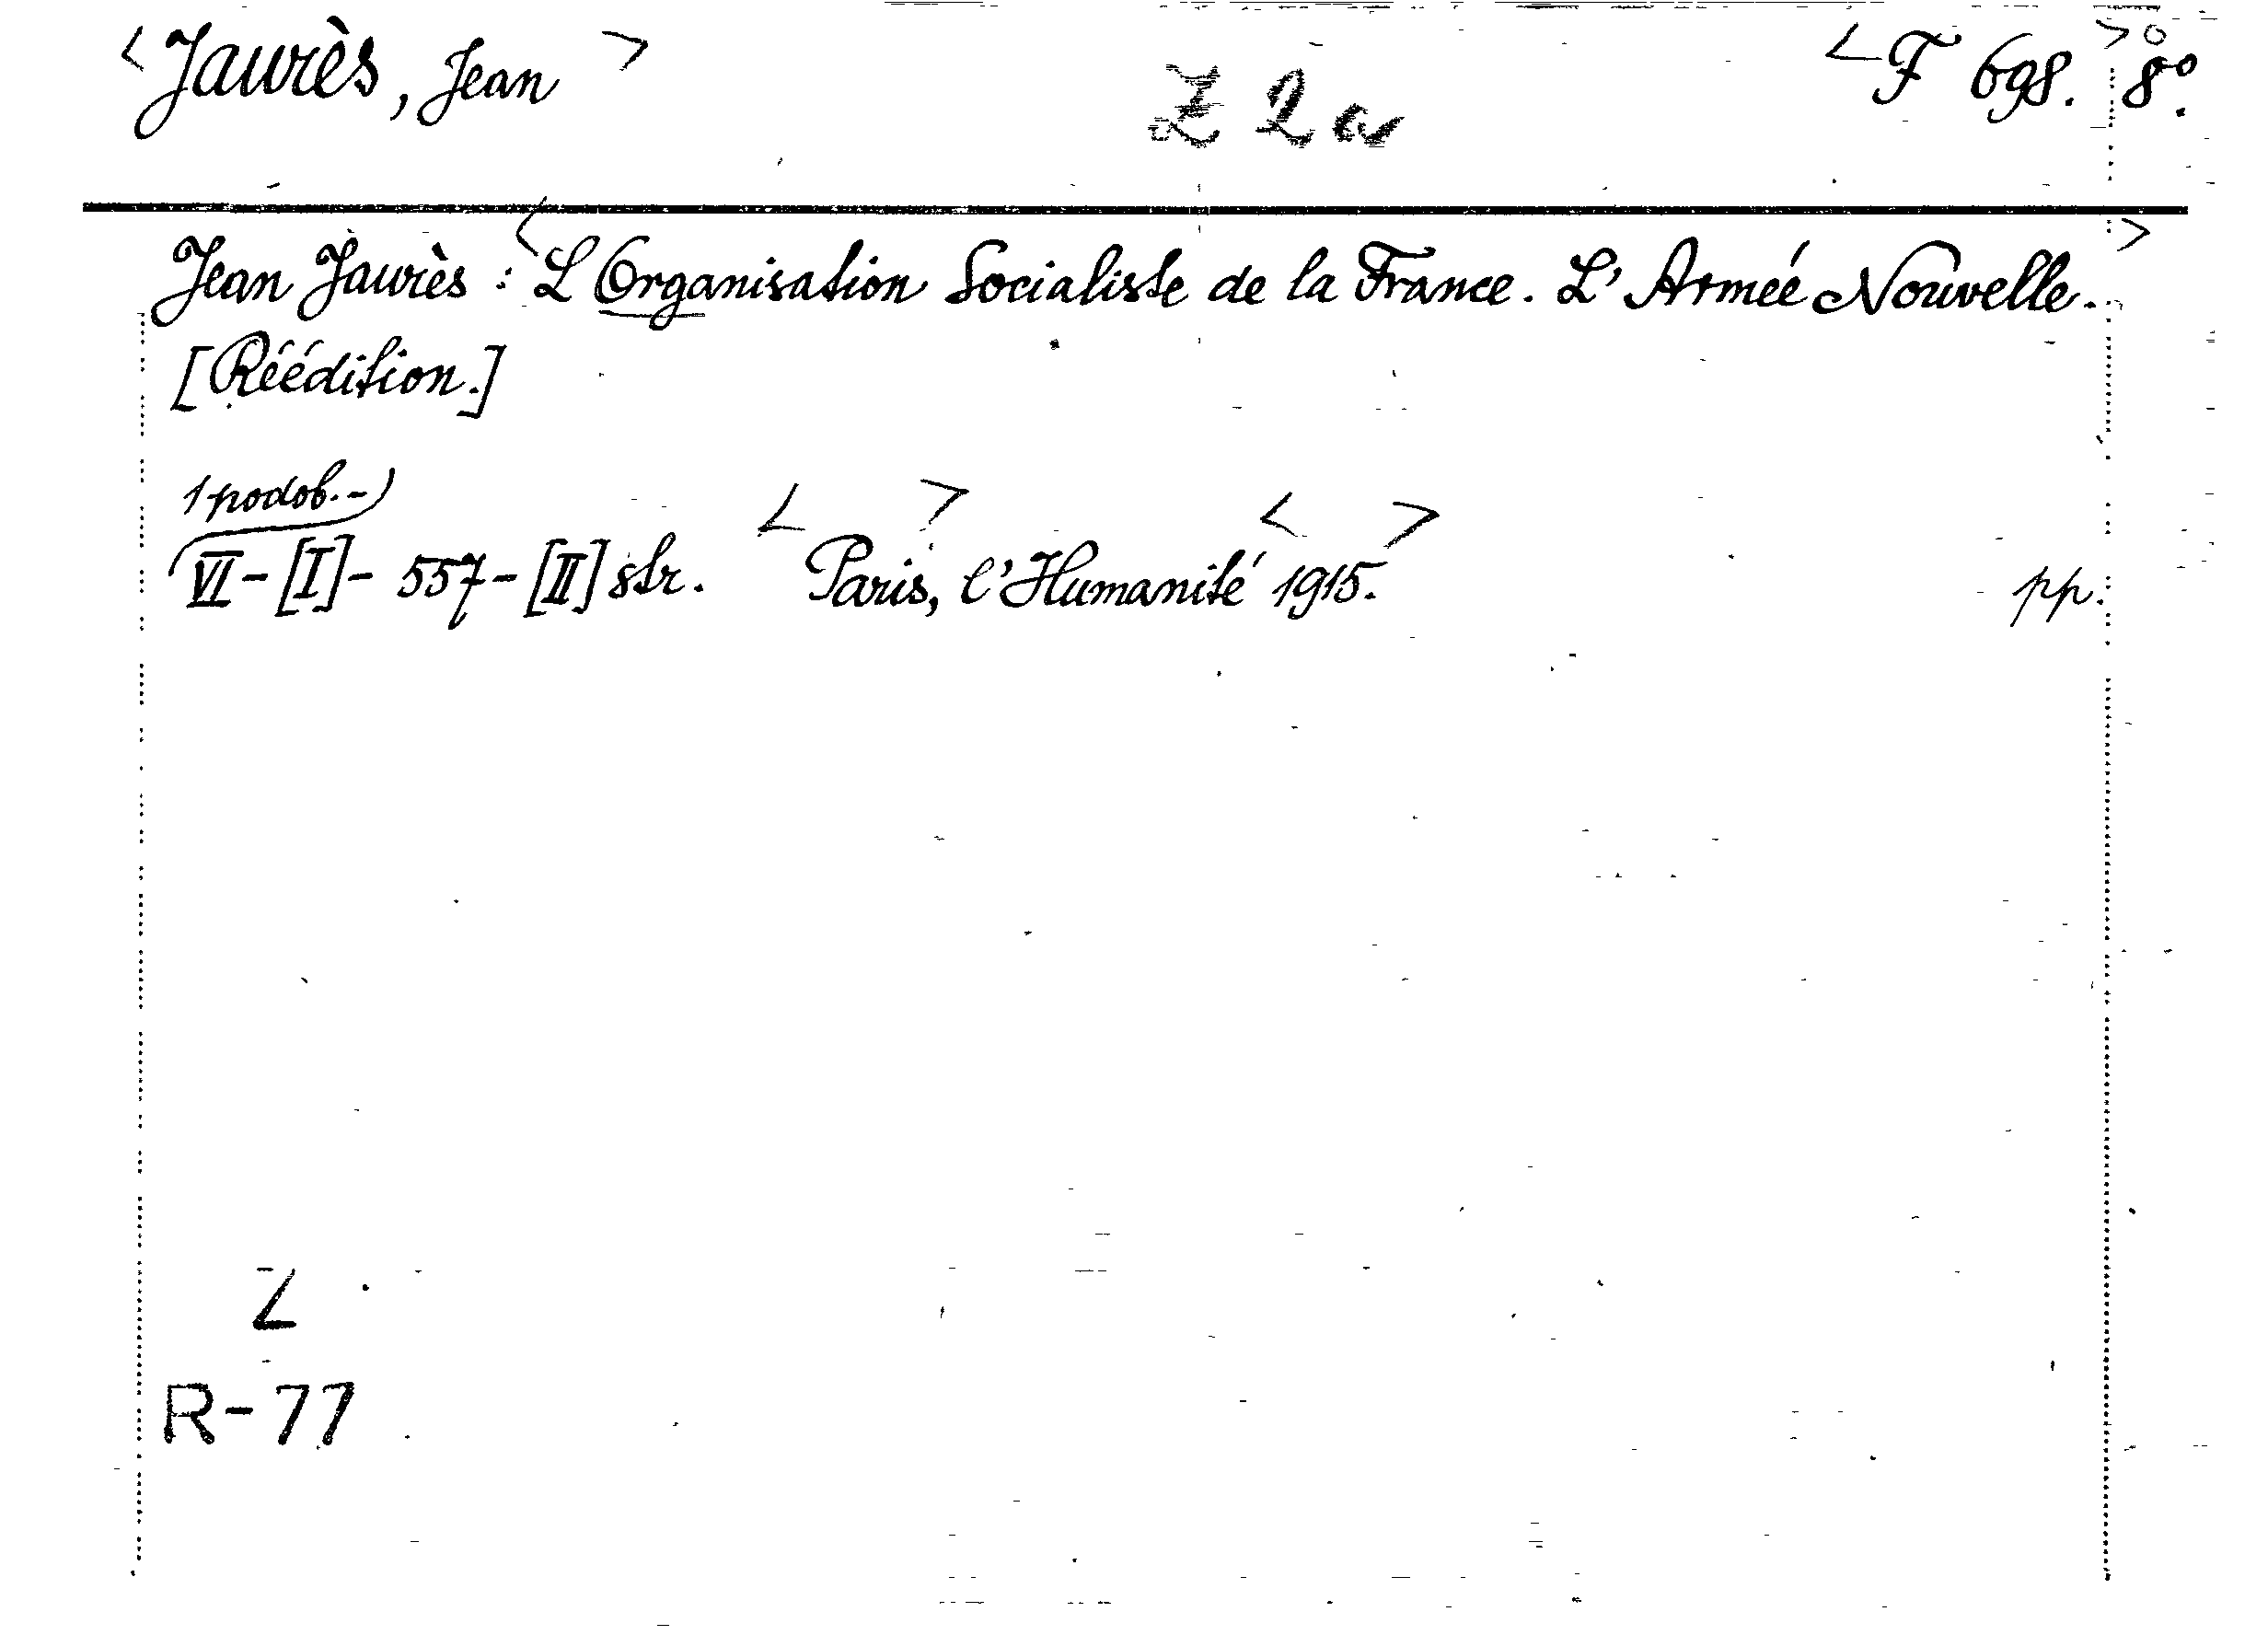 <Jaurès, Jean> Z 2a <F 698.> 8°.
Jean Jaurès: <L Organisation Socialiste de la France. L' Armeé Nouvelle.>
[Réédition.]
1 podob.-)
VI-[I]- 557-[II] str. <Paris>, l'Humanité <1915.> pp.
Z
R-77